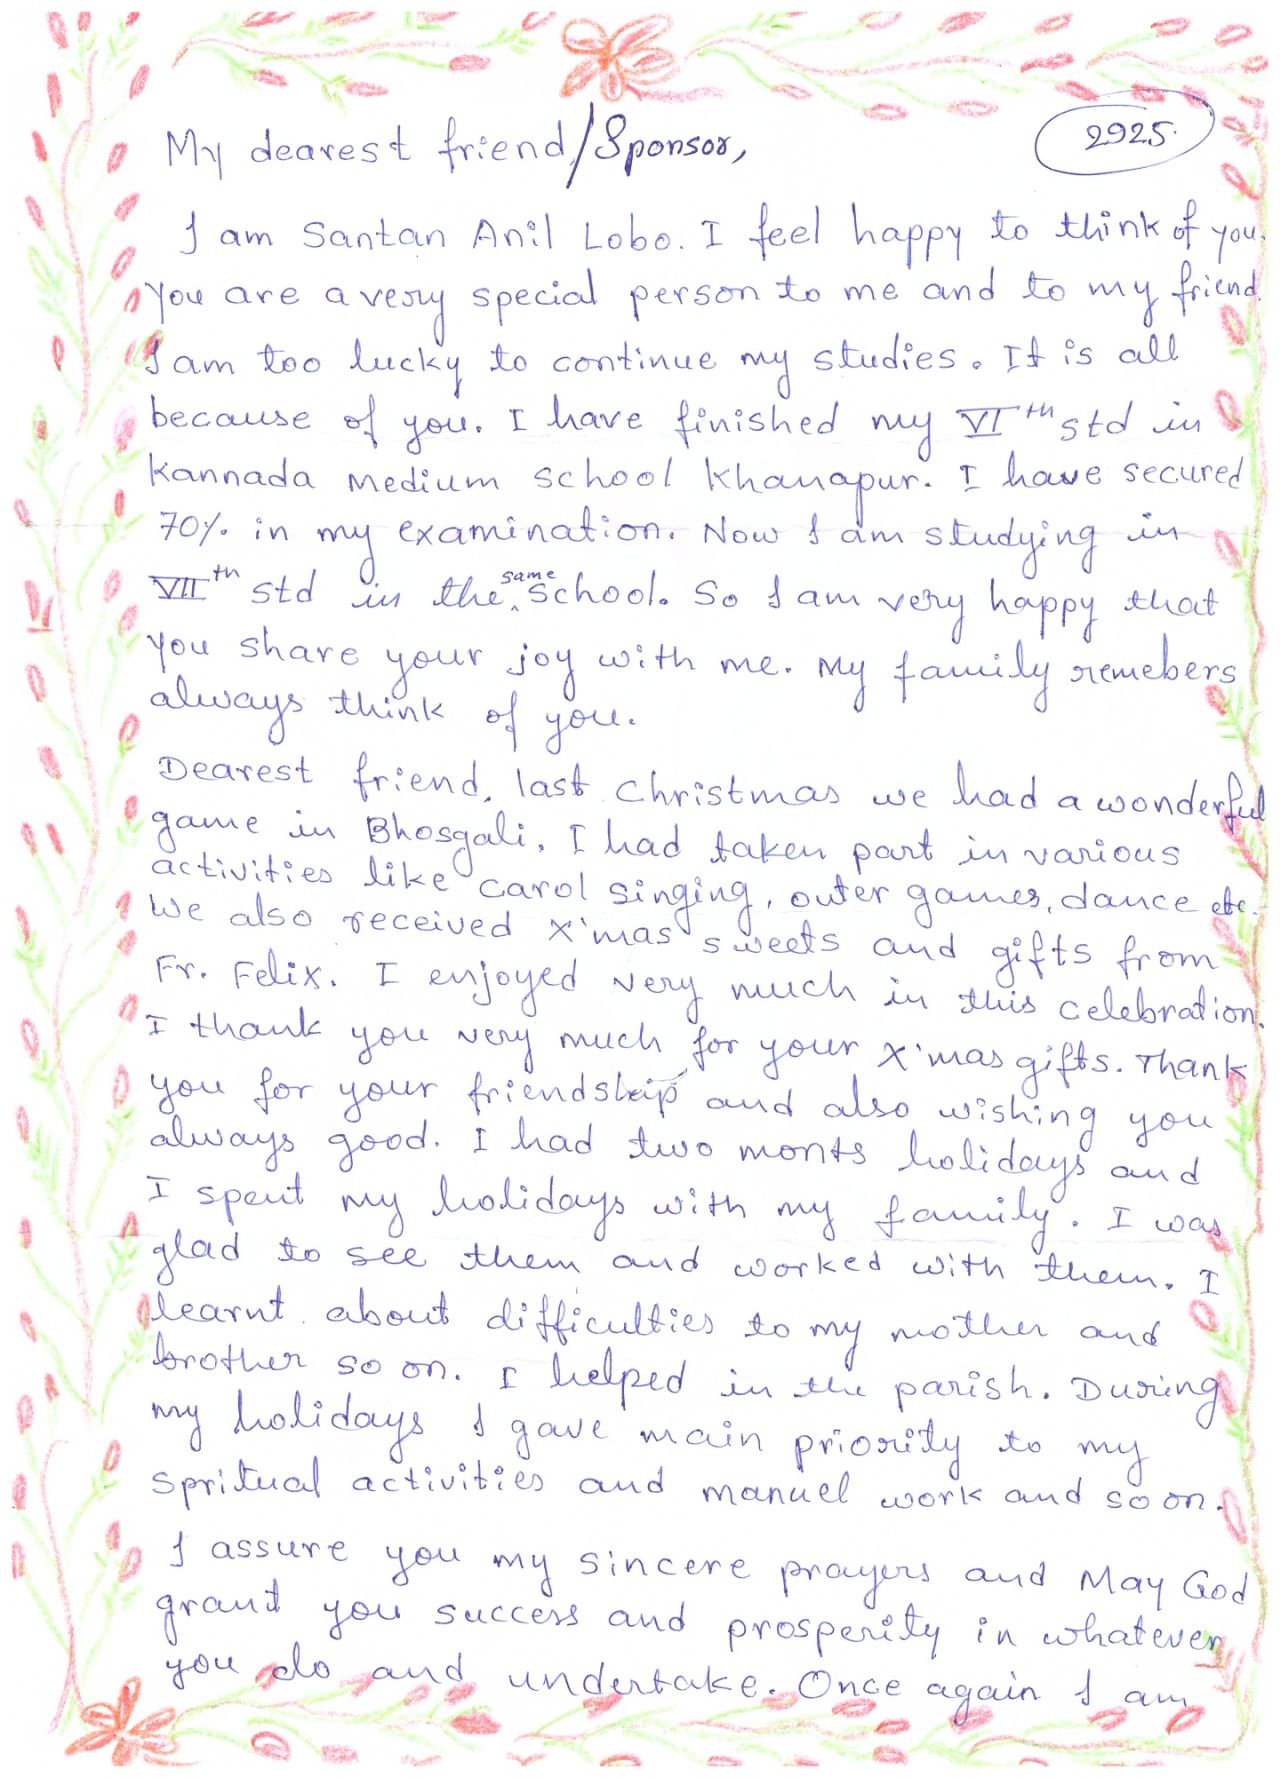 My dearest friend/Sponsor,
2925.
I am Santan Anil Lobo. I feel happy to think of you.
You are a very special person to me and to my friend.
I am too lucky to continue my studies. It is all
because of you. I have finished my VIth std in
Kannada Medium School Khanapur. I have secured
70%. in my examination. Now I am studying in
VIIth std in the same school. So I am very happy that
you share your joy with me. My family remebers
always think of you.
Dearest friend, last Christmas we had a wonderful
game in Bhosgali. I had taken part in various
activities like carol singing, outer games, dance etc.
We also received X'mas sweets and gifts from
Fr. Felix. I enjoyed very much in this celebration.
I thank you very much for your X'mas gifts. Thank
you for your friendship and also wishing you
always good. I had two monts holidays and
I spent my holidays with my family. I was
glad to see them and worked with them. I
learnt about difficulties to my mother and
brother so on. I helped in the parish. During
my holidays I gave main priority to my
Spritual activities and manuel work and so on.
I assure you my sincere prayers and May God
grant you success and prosperity in whatever
you do and undertake. Once again I am